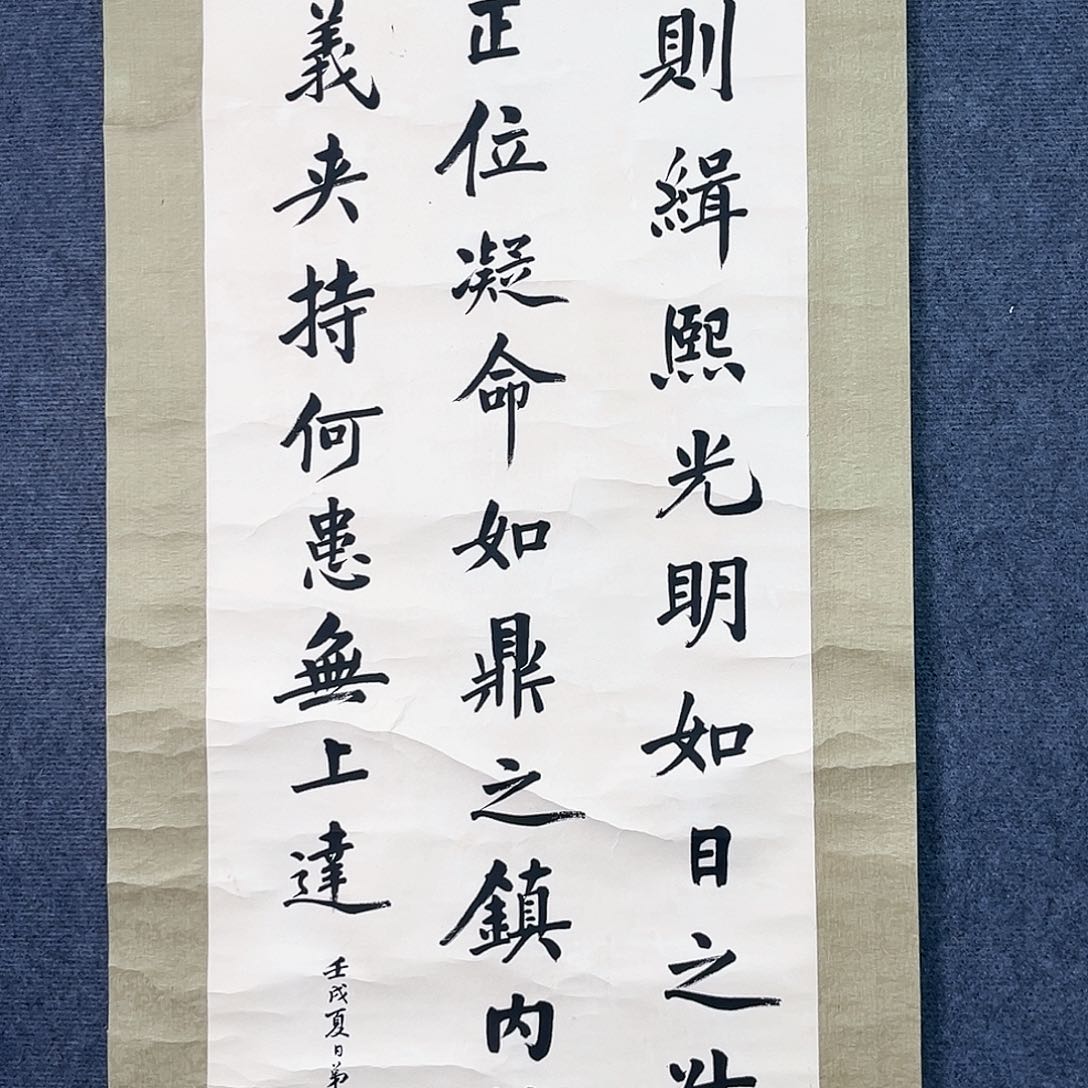 則緝熙光明如日之
正位凝命如鼎之鎮內
義夾持何患無上達
壬戌夏日弟